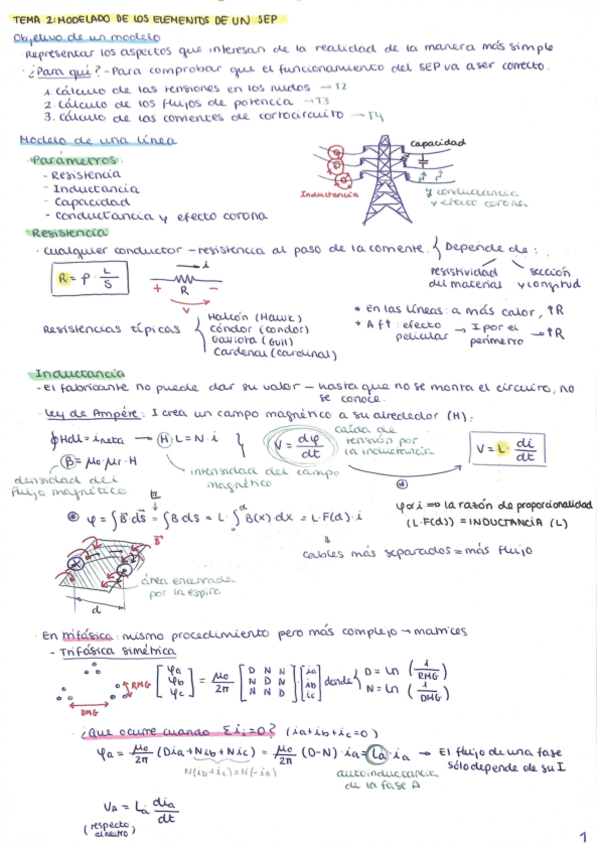 TEMA 2: MODELADO DE LOS ELEMENTOS DE UN SEP
Objetivo de un modelo
Representar los aspectos que interesan de la realidad de la manera más simple
· ¿Para qui? - Para comprobar que el funcionamiento del SEP va a ser correcto.
1. Cálculo de las tensiones en los nudos → T2
2. Cálculo de los flujos de potencia → T3
3. Cálculo de las corrientes de cortocircuito → T4
Modelo de una línea
· Parámetros:
- Resistencia
- Inductancia
- Capacidad
- Conductancia y efecto corona
Capacidad
Inductancia
y conductancia
y efecto corona
Resistencia
· Cualquier conductor - resistencia al paso de la corriente. { Depende de:
resistividad del material
sección y longitud
R = ρ · L/S
i
+ R -
V
* En las líneas: a más calor, ↑R
* A f↑: efecto pelicular → I por el perímetro → ↑R
Resistencias típicas
Halcón (Hawk)
Cóndor (Condor)
Gaviota (Gull)
Cardenal (Cardinal)
Inductancia
- El fabricante no puede dar su valor - hasta que no se monta el circuito, no
se conoce.
· Ley de Ampére: I crea un campo magnético a su alrededor (H):
∮Hdl = ineta → H·L = N·i
V = dφ/dt
caída de tensión por la inductancia
V = L · di/dt
B = μo·μr·H
intensidad del campo magnético
densidad del flujo magnético
φ = ∫B·ds = ∫Bds = L·∫B(x)·dx = L·F(d)·i
φ α i ⇒ la razón de proporcionalidad
(L·F(d)) = INDUCTANCIA (L)
cables más separados = más flujo
B
área encerrada por la espira
d
· En trifásica: mismo procedimiento pero más complejo → matrices
- Trifásica simétrica
RMG
DMG
[φa φb φc] = μo/2π [D N N; N D N; N N D] · [ia ib ic] donde { D = ln (1/RMG)
N = ln (1/DMG)
· ¿Que ocurre cuando Σi=0? (ia+ib+ic=0)
φa = μo/2π (Dia+Nib+Nic) = μo/2π (D-N)·ia = La·ia → El flujo de una fase
sólo depende de su I
N(ib+ic)=N(-ia)
autoinductancia de la fase A
VA = La dia/dt
(respecto al neutro)
1